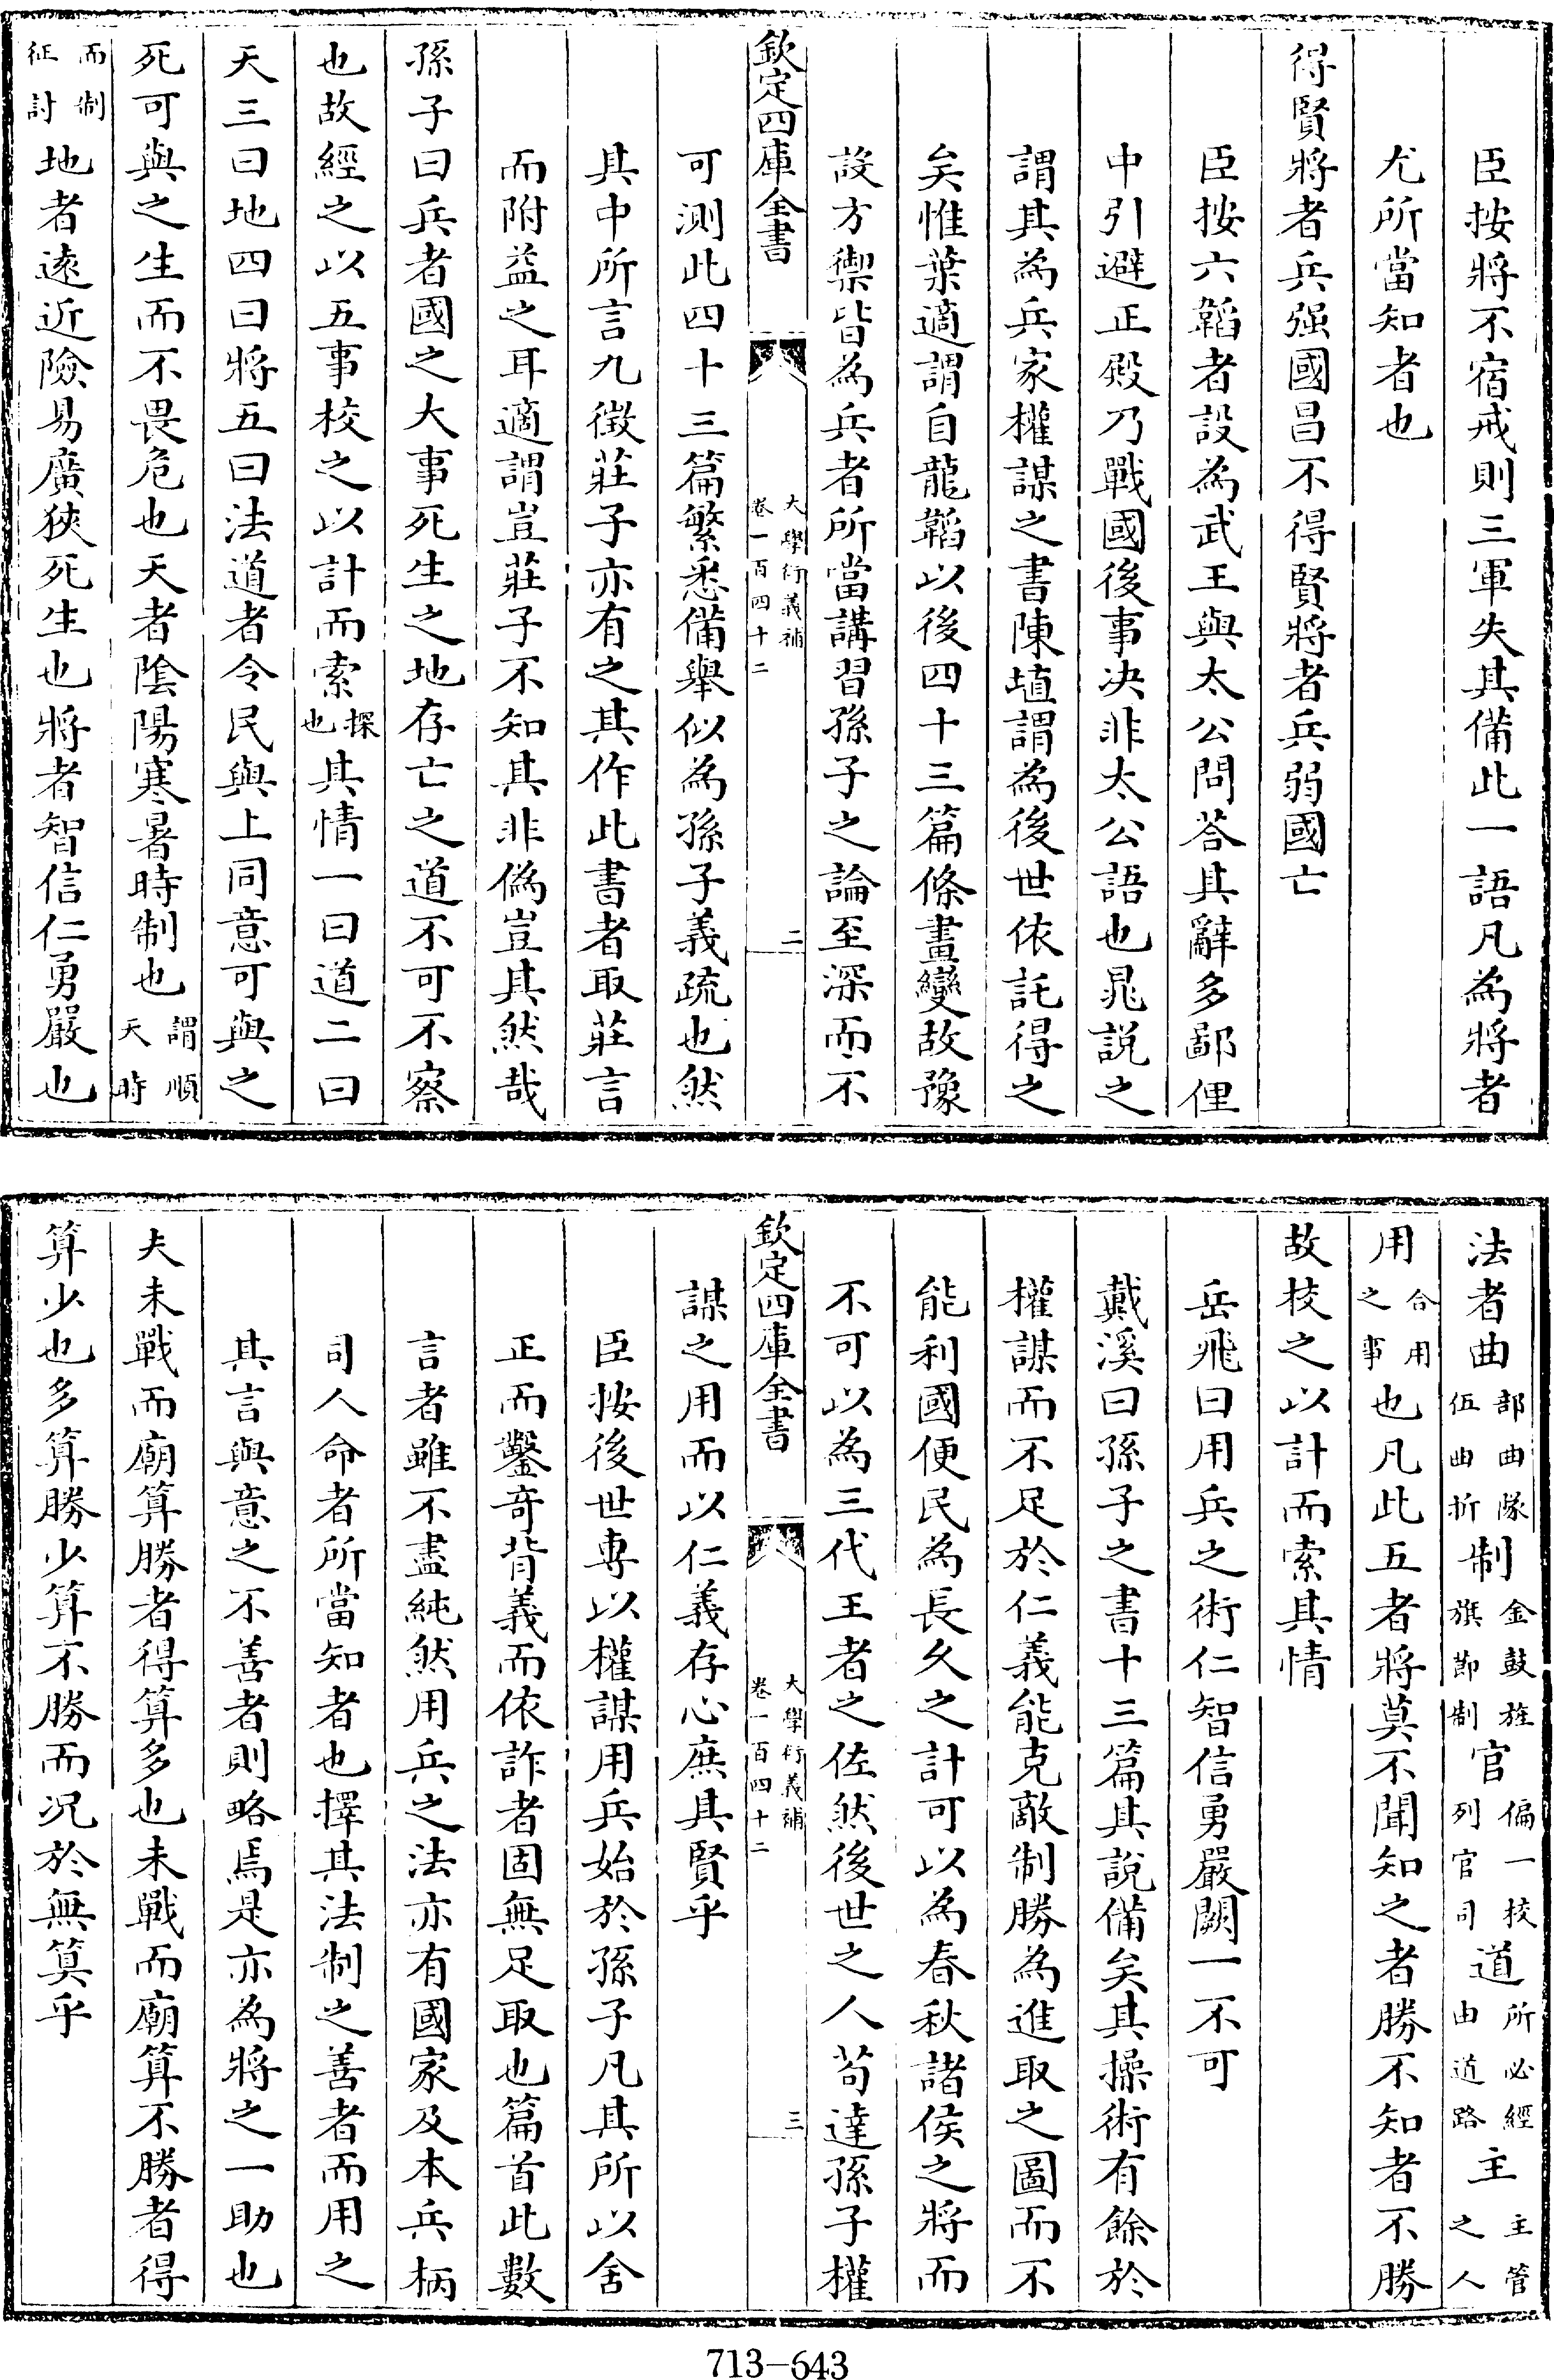 臣按將不宿戒則三軍失其備此一語凡為將者
尤所當知者也
得賢將者兵强國昌不得賢將者兵弱國亡
臣按六韜者設為武王與太公問答其辭多鄙俚
中引避正殿乃戰國後事决非太公語也晁說之
謂其為兵家權謀之書陳埴謂為後世依託得之
矣惟葉適謂自龍韜以後四十三篇條畫變故豫
設方禦皆為兵者所當講習孫子之論至深而不
欽定四庫全書 大學衍義補 卷一百四十二 二
可測此四十三篇繁悉備舉似為孫子義疏也然
其中所言九徵莊子亦有之其作此書者取莊言
而附益之耳適謂豈莊子不知其非偽豈其然哉
孫子曰兵者國之大事死生之地存亡之道不可不察
也故經之以五事校之以計而索探也其情一曰道二曰
天三曰地四曰將五曰法道者令民與上同意可與之
死可與之生而不畏危也天者陰陽寒暑時制也謂順天時
而制征討地者遠近險易廣狹死生也將者智信仁勇嚴也
法者曲部曲隊伍曲折制金鼓旌旗節制官偏一校列官司道所必經由道路主主管之人
用合用之事也凡此五者將莫不聞知之者勝不知者不勝
故校之以計而索其情
岳飛曰用兵之術仁智信勇嚴闕一不可
戴溪曰孫子之書十三篇其說備矣其操術有餘於
權謀而不足於仁義能克敵制勝為進取之圖而不
能利國便民為長久之計可以為春秋諸侯之將而
不可以為三代王者之佐然後世之人苟達孫子權
欽定四庫全書 大學衍義補 卷一百四十二 三
謀之用而以仁義存心庶其賢乎
臣按後世專以權謀用兵始於孫子凡其所以舍
正而鑿奇背義而依詐者固無足取也篇首此數
言者雖不盡純然用兵之法亦有國家及本兵柄
司人命者所當知者也擇其法制之善者而用之
其言與意之不善者則略焉是亦為將之一助也
夫未戰而廟算勝者得算多也未戰而廟算不勝者得
算少也多算勝少算不勝而况於無算乎
713-643